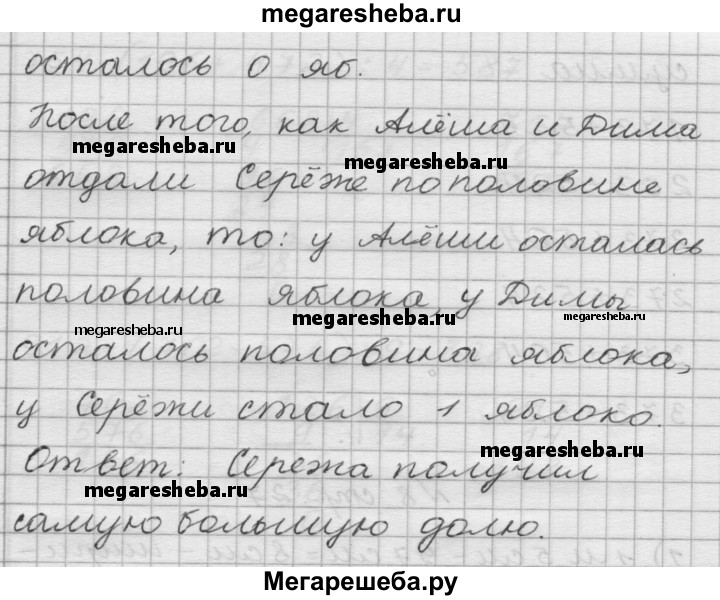 megaresheba.ru
осталось 0 яб.
После того, как Алёша и Дима
megaresheba.ru megaresheba.ru
отдали Серёже по половине
яблока, то: у Алёши осталась
половина яблока, у Димы
megaresheba.ru megaresheba.ru megaresheba.ru
осталось половина яблока,
у Серёжи стало 1 яблоко.
megaresheba.ru
Ответ: Сережа получил
megaresheba.ru
самую большую долю.
Мегарешеба.ру